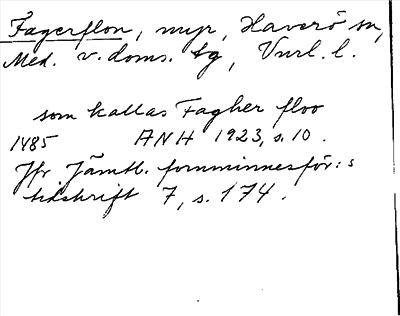 Fagerflon, myr, Haverö sn,
Med. v. doms. tg, Vnrl. l.
som kallas Fagher floo
1485 ANH 1923, s. 10.
Jfr. Jämtl. fornminnesför:s
tidskrift 7, s. 174.